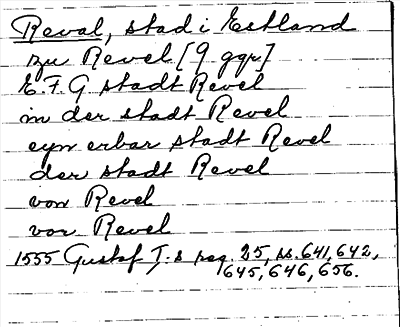 Reval, stad i Estland
zu Revel [9 ggr]
E. F. G stadt Revel
in der stadt Revel
eyn erbar stadt Revel
der stadt Revel
von Revel
vor Revel
1555 Gustaf I. s reg. 25, ss. 641, 642,
645, 646, 656.